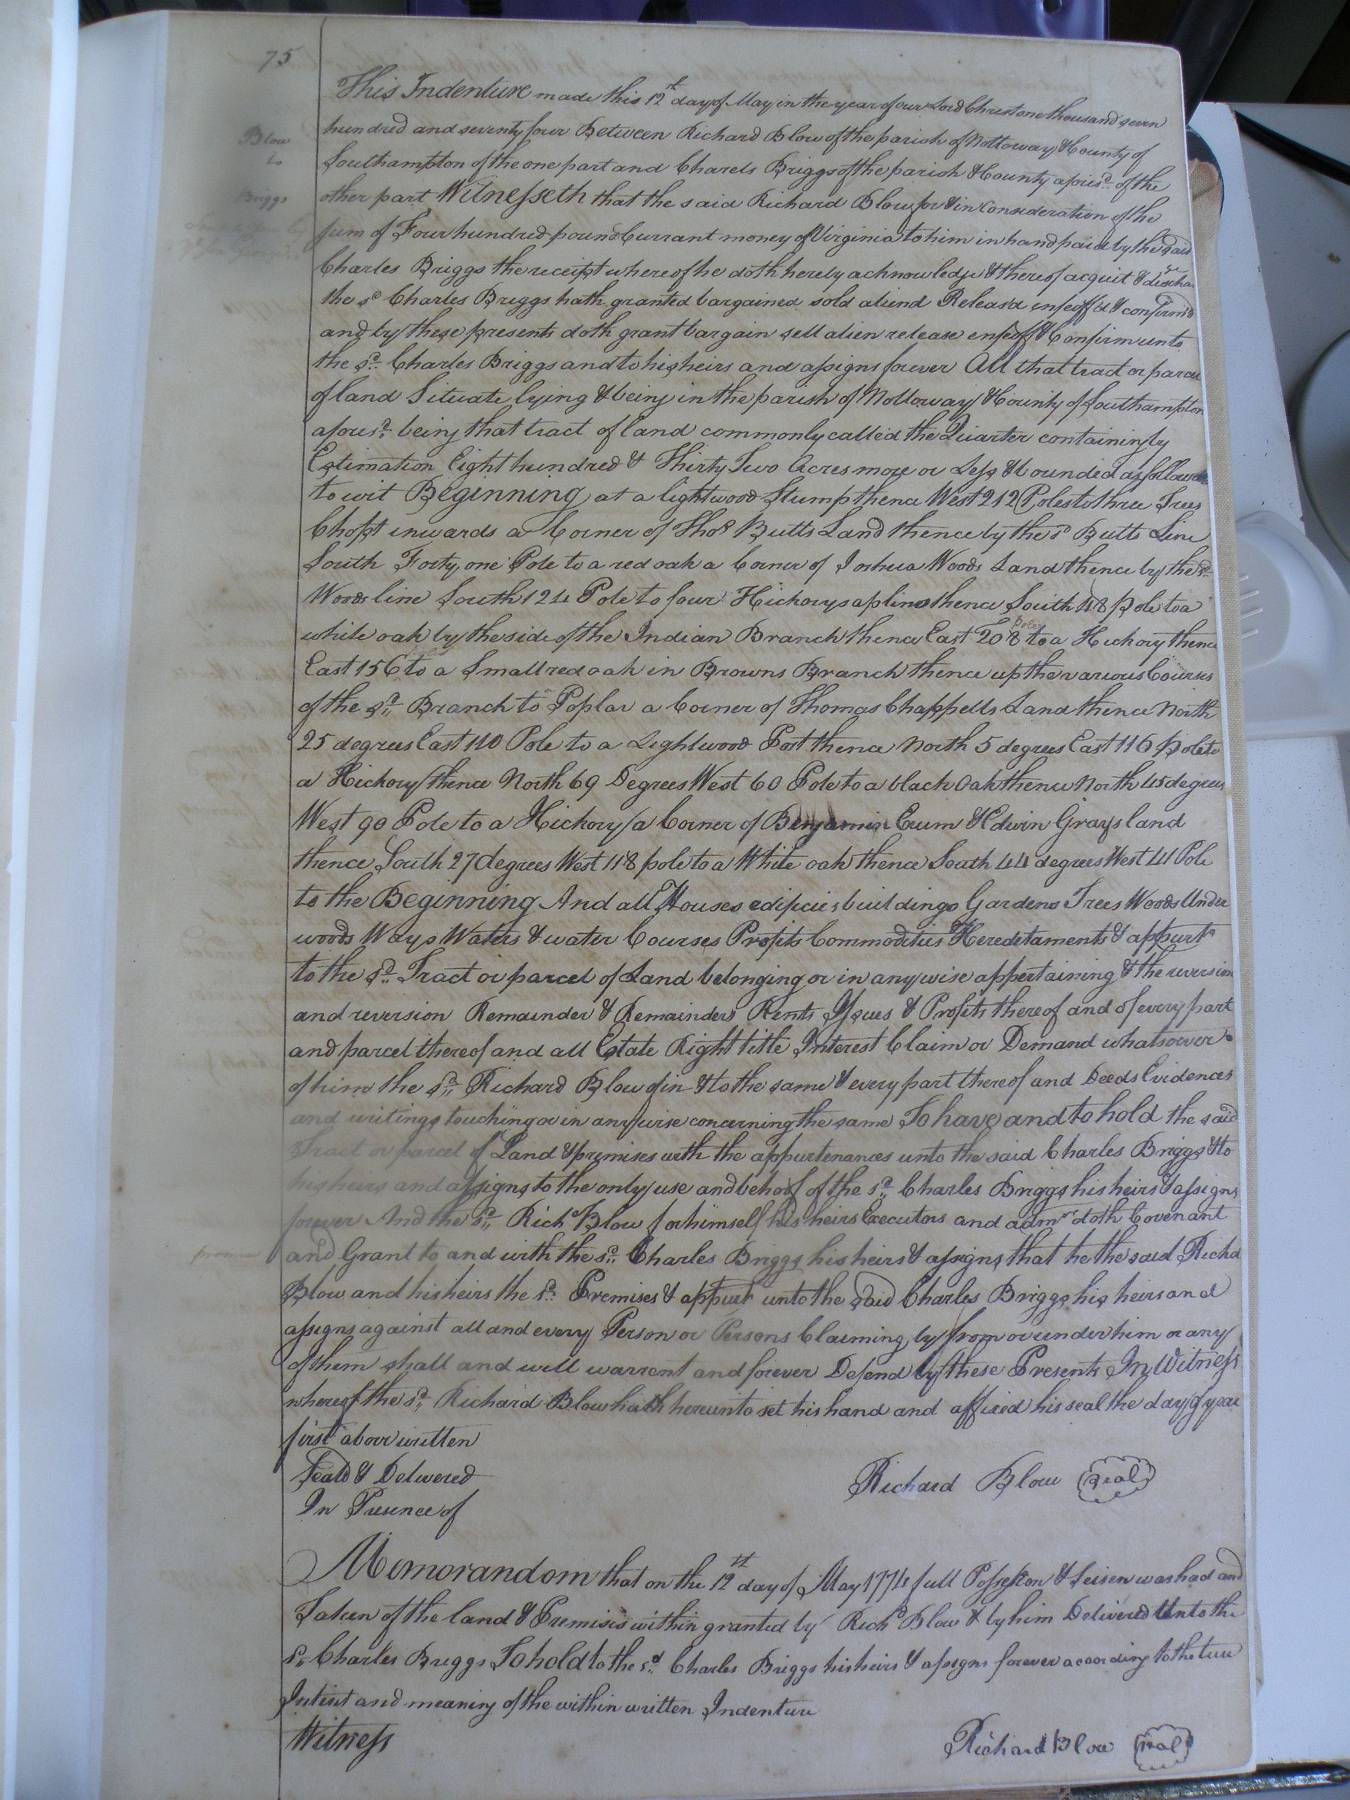 75
Blow
to
Briggs
This Indenture made this 12th day of May in the year of our Lord Christ one thousand seven
hundred and seventy four Between Richard Blow of the parish of Nottoway & County of
Southampton of the one part and Charels Briggs of the parish & County aforesd. of the
other part Witnesseth that the said Richard Blow for & in Consideration of the
sum of Four hundred pounds Currant money of Virginia to him in hand paid by the said
Charles Briggs the receipt whereof he doth hereby acknowledge & thereof acquit & discha
the sd Charles Briggs hath granted bargained sold aliend Releasd enfeoff'd & confirm'd
and by these presents doth grant bargain sell alien release enfeoff & Confirm unto
the sd. Charles Briggs and to his heirs and assigns forever All that tract or parcel
of land Situate lying & being in the parish of Nottoway & County of Southampton
aforesd. being that tract of land commonly called the Quarter containing by
Estimation Eight hundred & Thirty Two Acres more or Less & bounded as follows
to wit Beginning at a lightwood Stump thence West 212 Poles to three Trees
Chopt inwards a Corner of Thos Butts Land thence by the sd Butts Line
South Forty one Pole to a red oak a Corner of Joshua Woods Land thence by the sd.
Woods line South 124 Pole to four Hickorys aplins thence South 48 pole to a
white oak by the side of the Indian Branch thence East 208 poles to a Hickory thence
East 156 to a Small red oak in Browns Branch thence up the various Courses
of the sd. Branch to Poplar a Corner of Thomas Chappells Land thence North
25 degrees East 110 Pole to a Lightwood Post thence North 5 degrees East 116 pole to
a Hickory thence North 69 Degrees West 60 Pole to a black Oak thence North 45 degrees
West 90 Pole to a Hickory a Corner of Benjamin Crum & Edwin Grays land
thence South 27 degrees West 118 pole to a White oak thence South 44 degrees West 41 Pole
to the Beginning And all Houses edificies buildings Gardens Trees Woods Under
woods Ways Waters & water Courses Profits Commodities Hereditaments & appurts
to the sd. Tract or parcel of Land belonging or in any wise appertaining & the reversion
and reversion Remainder & Remainders Rents Issues & Profits thereof and of every part
and parcel thereof and all Estate Right title Interest Claim or Demand whatsoever
of him the sd. Richard Blow of in & to the same & every part thereof and Deeds Evidences
and writings touching or in any wise concerning the same To have and to hold the said
Tract or parcel of Land & premises with the appurtenances unto the said Charles Briggs & to
his heirs and assigns to the only use and behoof of the sd. Charles Briggs his heirs & assigns
forever And the sd. Richd Blow for himself his heirs Executors and admrs doth Covenant
and Grant to and with the sd. Charles Briggs his heirs & assigns that he the said Richd
Blow and his heirs the sd. Premises & appurts unto the said Charles Briggs his heirs and
assigns against all and every Person or Persons Claiming by from or under him or any
of them shall and will warrent and forever Defend by these Presents In Witness
whereof the sd. Richard Blow hath hereunto set his hand and affixed his seal the day & year
first above written
Seald & Delivered
In Presence of
Richard Blow seal
Memorandom that on the 12th day of May 1774 full Possession & Seisen was had and
Taken of the land & Premisis within granted by Richd Blow & by him Delivered Unto the
sd. Charles Briggs To hold to the sd. Charles Briggs his heirs & assigns forever according to the true
Intent and meaning of the within written Indenture
Witness
Richard Blow seal